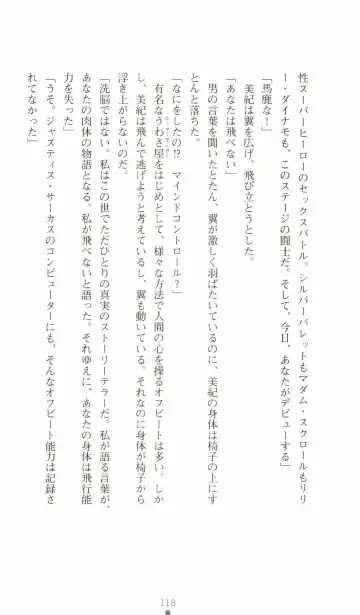 性スーパーヒーローのセックスバトル。シルバーバレットもマダム・スクロールもリリ
ー・ダイナモも、このステージの闘士だ。そして、今日、あなたがデビューする」
「馬鹿な！」
美紀は翼を広げ、飛び立とうとした。
「あなたは飛べない」
男の言葉を聞いたとたん、翼が激しく羽ばたいているのに、美紀の身体は椅子の上にす
とんと落ちた。
「なにをしたの!? マインドコントロール？」
有名なうわさ屋をはじめとして、様々な方法で人間の心を操るオフビートは多い。しか
し、美紀は飛んで逃げようと考えているし、翼も動いている。それなのに身体が椅子から
浮き上がらないのだ。
「洗脳ではない。私はこの世でただひとりの真実のストーリーテラーだ。私が語る言葉が、
あなたの肉体の物語となる。私が飛べないと語った。それゆえに、あなたの身体は飛行能
力を失った」
「うそ。ジャスティス・サーカスのコンピューターにも、そんなオフビート能力は記録さ
れてなかった」
118